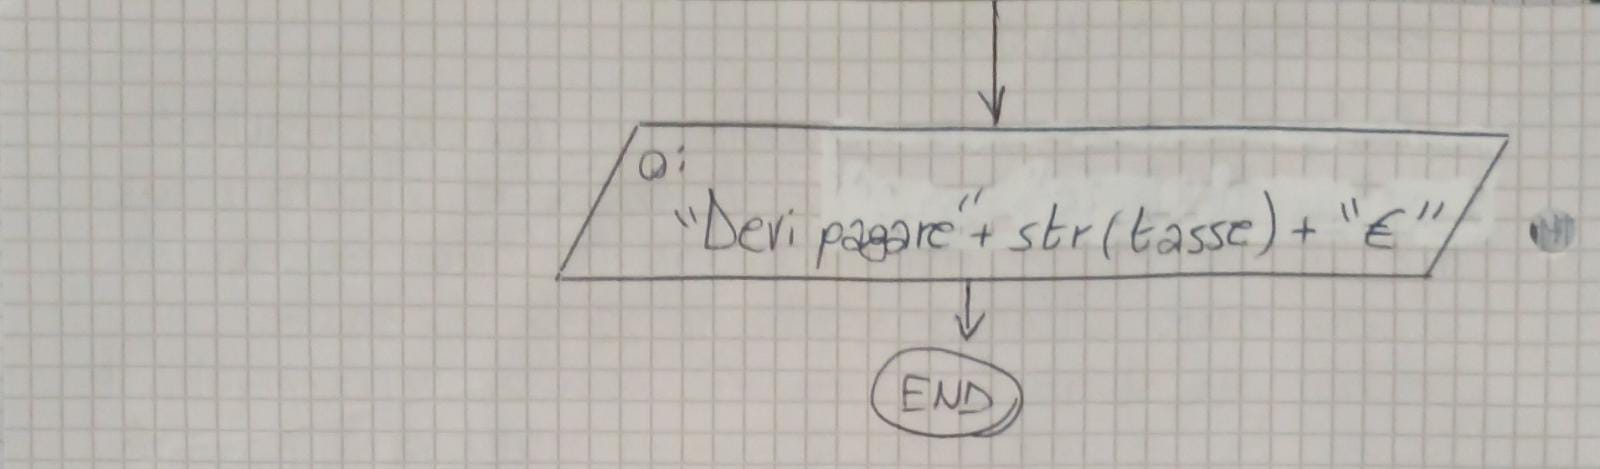 O:
"Devi pagare" + str(tasse) + "€"
END